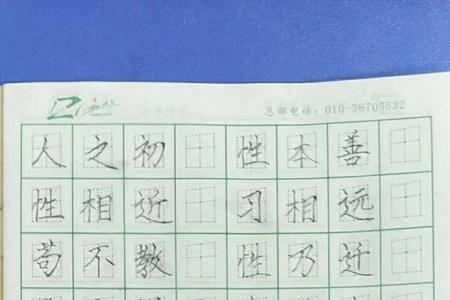 总部电话：010-56705532
人之初 性本善
性相近 习相远
苟不教 性乃迁